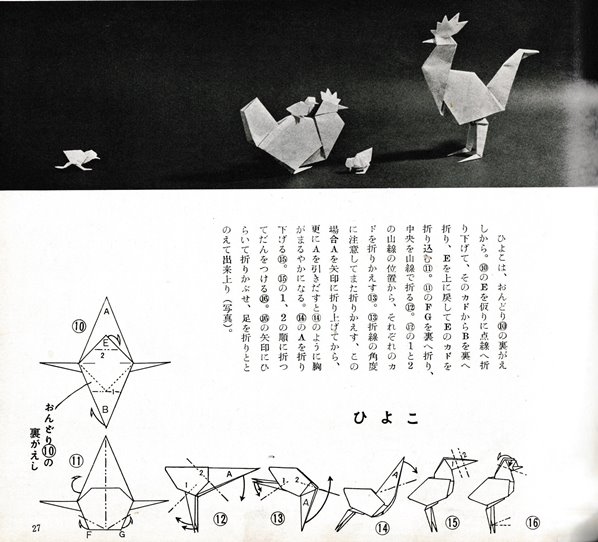 ひよこ
ひよこは、おんどり⑩の裏がえ
しから。⑩のEを仮りに点線へ折
り下げて、そのカドからBを裏へ
折り、Eを上に戻してEのカドを
折り込む⑪。⑪のFGを裏へ折り、
中央を山線で折る⑫。⑫の1と2
の山線の位置から、それぞれのカ
ドを折りかえす⑬。⑬折線の角度
に注意してまた折りかえす、この
場合Aを矢印に折り上げてから、
更にAを引きだすと⑭のように胸
がまるやかになる。⑭のAを折り
下げる⑮。⑮の1、2の順に折つ
てだんをつける⑯。⑯の矢印にひ
らいて折りかぶせ、足を折りとと
のえて出来上り(写真)。
⑩
A
E
2
1
B
おんどり⑩の
裏がえし
⑪
F
G
1
2
A
⑫
1
2
A
⑬
A
⑭
1
2
⑮
⑯
27